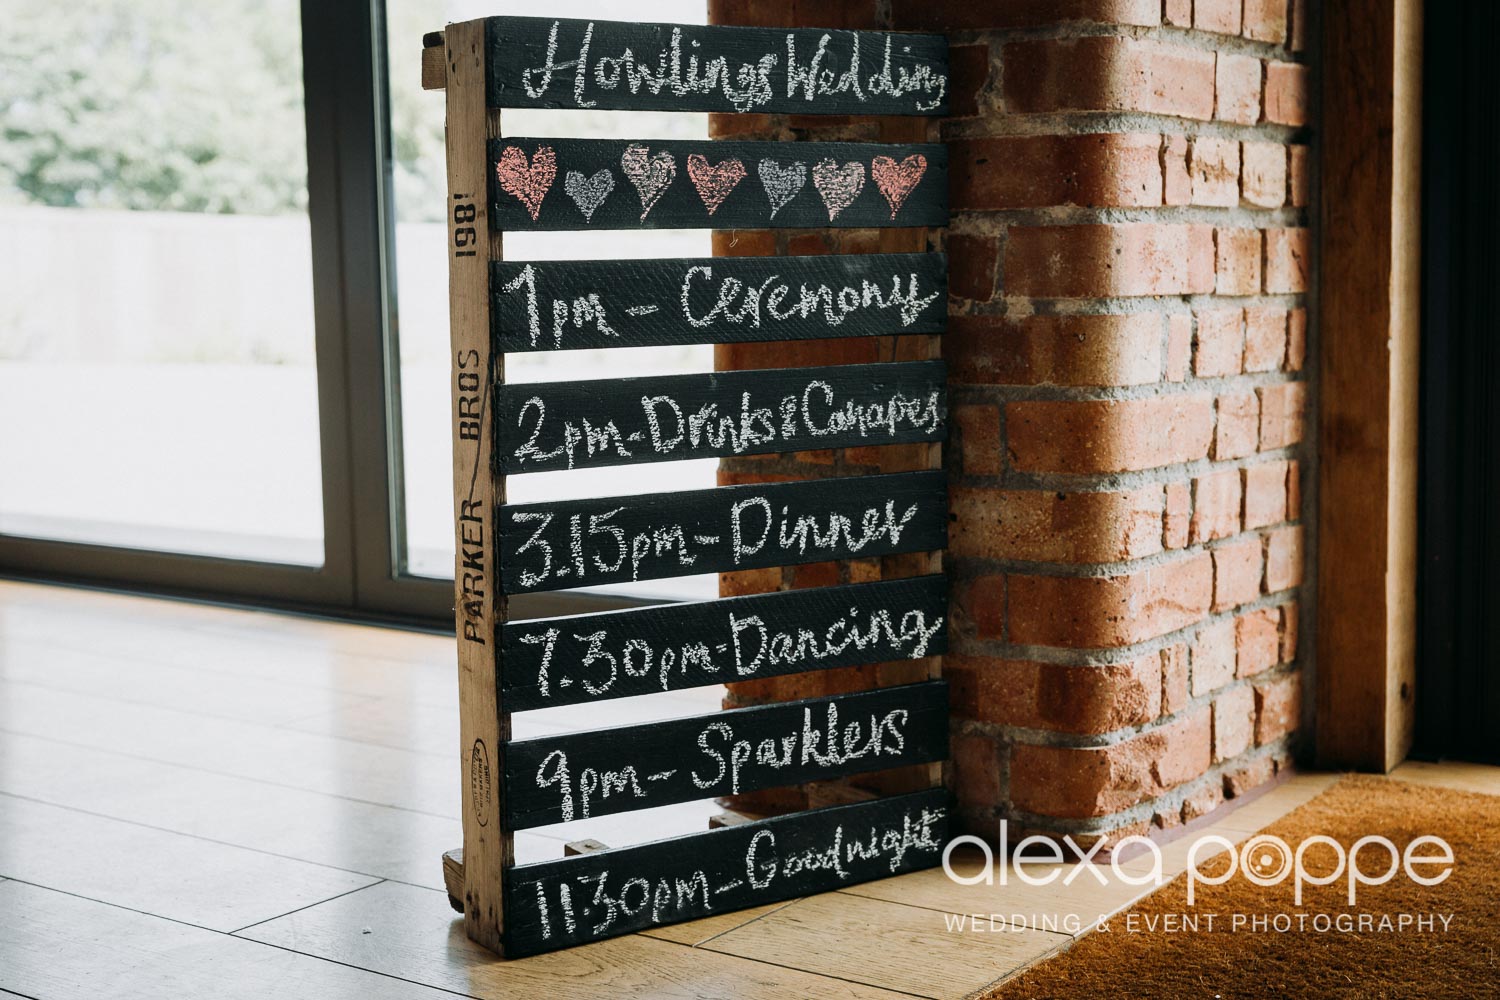 Howlings Wedding
1pm - Ceremony
2pm - Drinks & Canapes
3.15pm - Dinner
7.30pm - Dancing
9pm - Sparklers
11.30pm - Goodnight
PARKER BROS 1981
alexa poppe
WEDDING & EVENT PHOTOGRAPHY